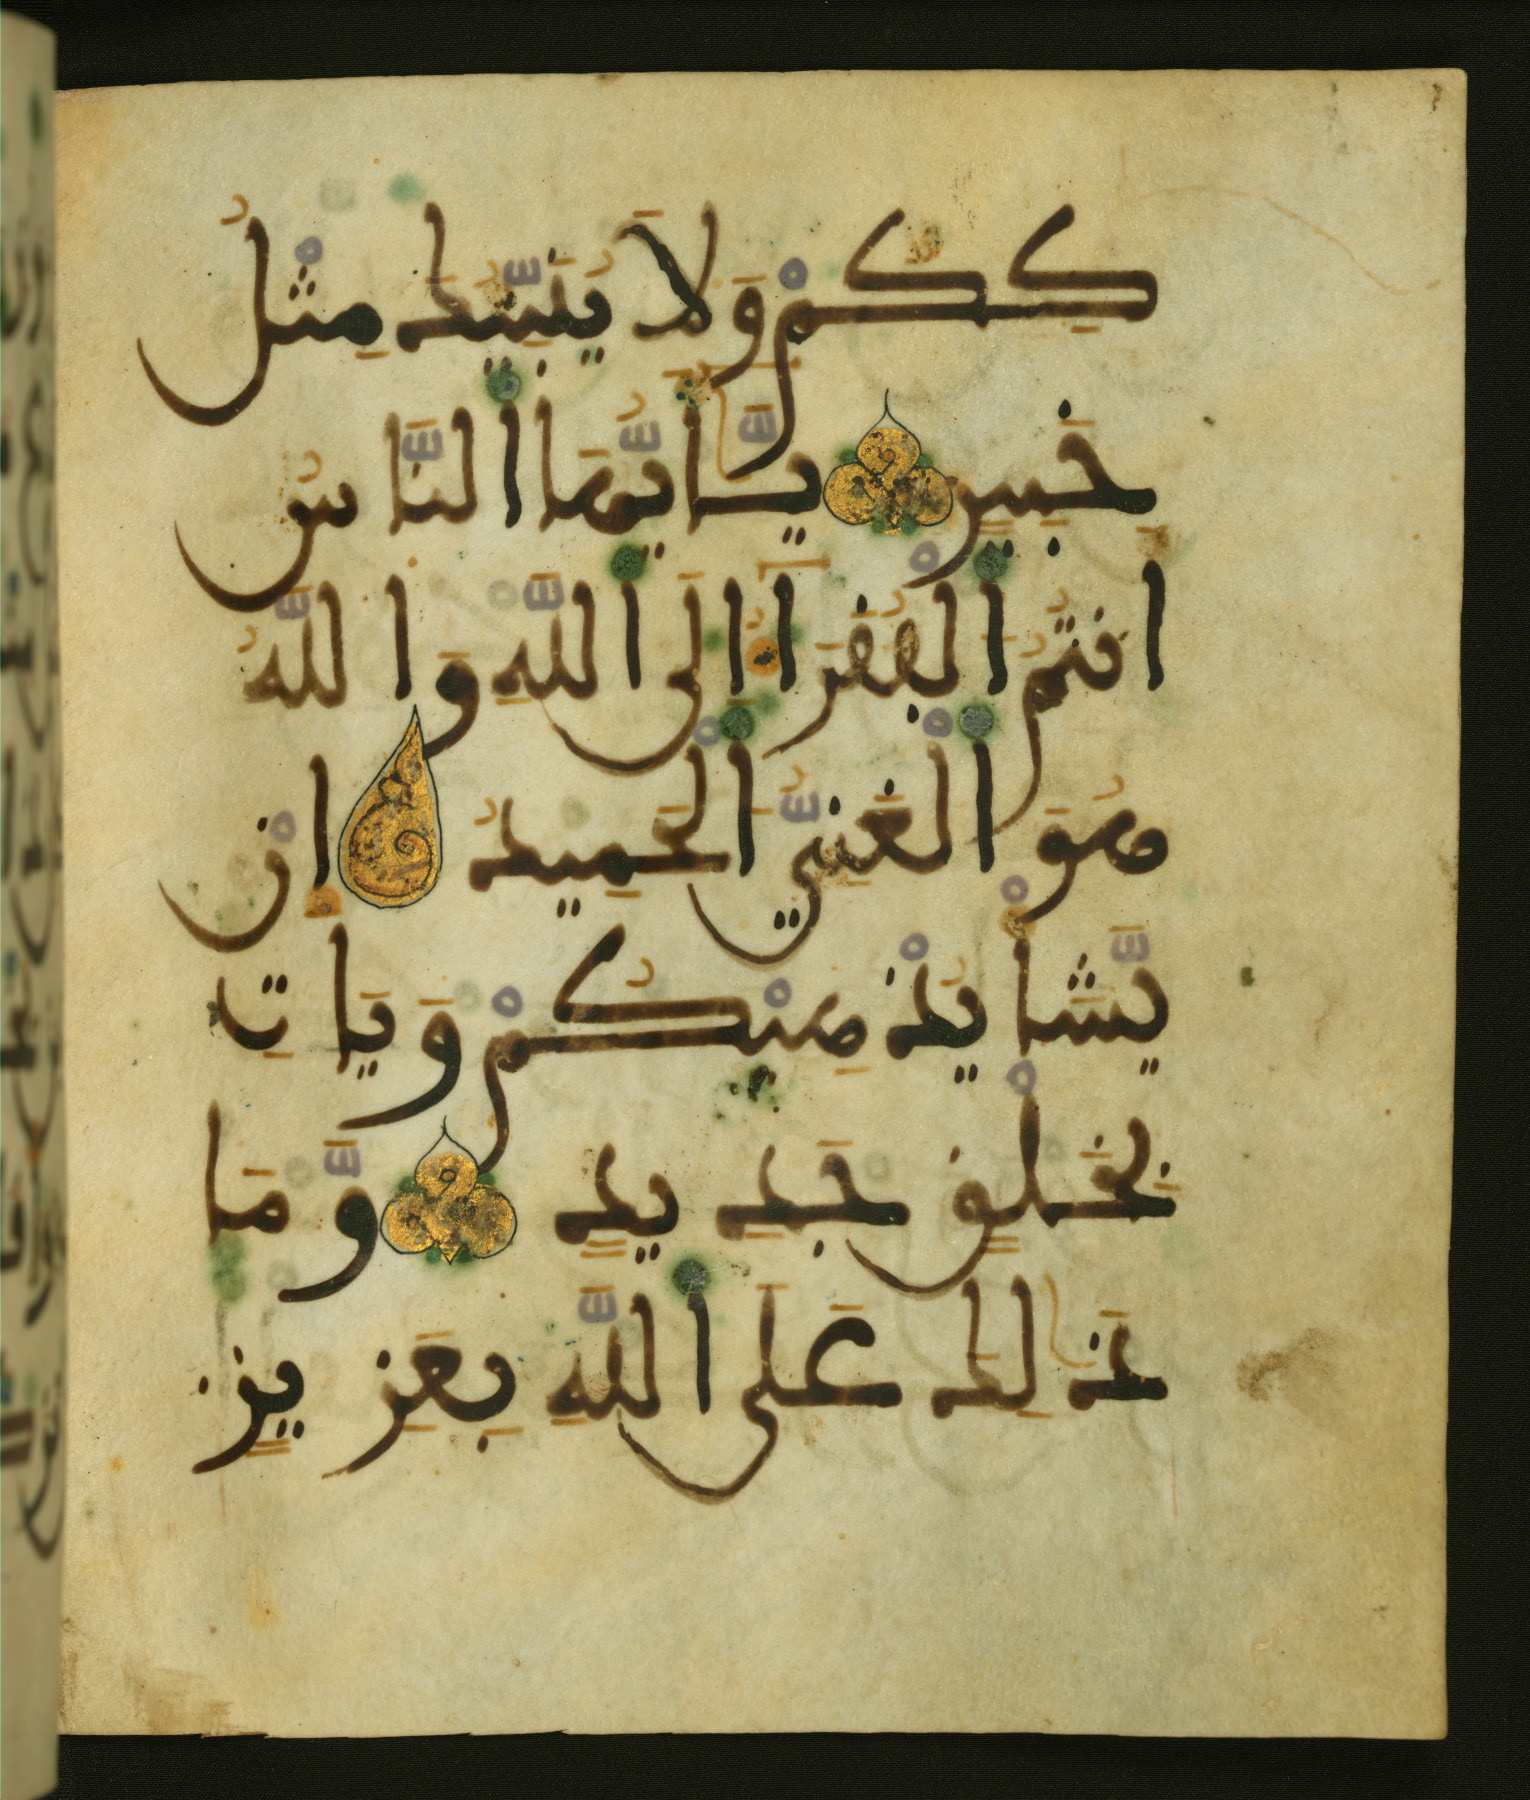 كِكُمْ وَلَا يُنَبِّئُكَ مِثْلُ
خَبِيرٍ يَٰأَيُّهَا النَّاسُ
أَنتُمُ الْفُقَرَآءُ إِلَى اللَّهِ وَاللَّهُ
هُوَ الْغَنِيُّ الْحَمِيدُ إِنْ
يَّشَأْ يُذْهِبْكُمْ وَيَأْتِ
بِخَلْقٍ جَدِيدٍ وَّمَا
ذَٰلِكَ عَلَى اللَّهِ بِعَزِيزٍ